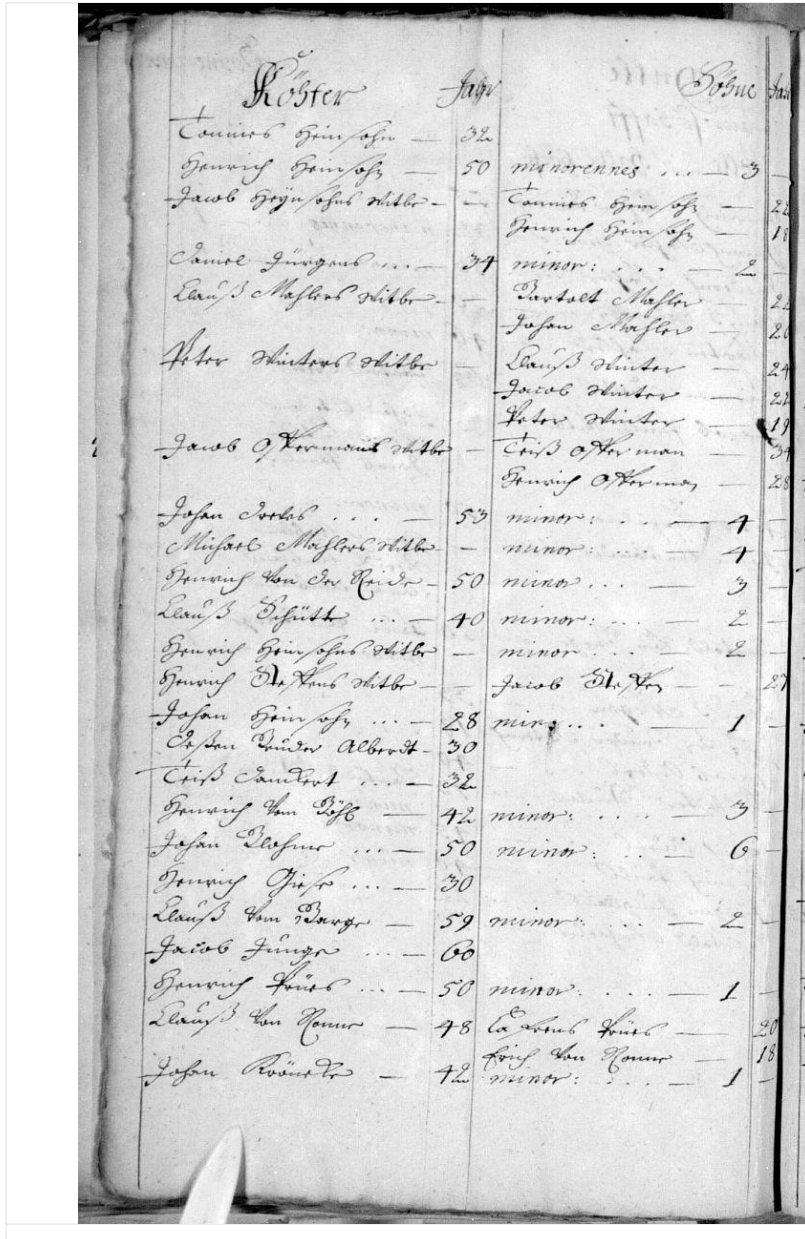 Köhter Jahr Söhne Jahr
Tonnies Heinsohn — 32
Henrich Heinsohn — 50 minorennes ... — 3 —
Jacob Heynsohns Witbe — — Tonnies Heinsohn — 22
Henrich Heinsohn — 18
Daniel Jürgens ... — 34 minor: . . . — 2 —
Clauß Mahlers Witbe — — Bartolt Mahler — 22
Johan Mahler — 20
Peter Winters Witbe — Clauß Winter — 24
Jacob Winter — 22
Peter Winter — 19
Jacob Witbe — Teiß — 34
Henrich — 28
Johan Drewes . . . — 53 minor: . . . — 4 —
Michael Mahlers Witbe — minor: . . . — 4 —
Henrich Von der Reide — 50 minor . . . — 3 —
Clauß Schütte ... — 40 minor: . . . — 2 —
Henrich Heinsohns Witbe — minor . . . — 2 —
Henrich Steffens Witbe — — Jacob Steffen — — 27
Johan Heinsohn ... — 28 min: . . . — 1 —
Deßen Bruder Alberdt — 30
Teiß Danckert ... — 32
Henrich Vom — 42 minor: . . . . — 3 —
Johan Blohme ... — 50 minor: . . — 6 —
Henrich Giese ... — 30
Clauß Vom Barge — 59 minor: . . . — 2 —
Jacob Junge ... — 60
Henrich Prües ... — 50 minor: . . . — 1 —
Clauß Von Ronne — 48 Prües — 20
Erich Von Ronne — 18
Johan Kröncke — 42 minor: . . . — 1 —